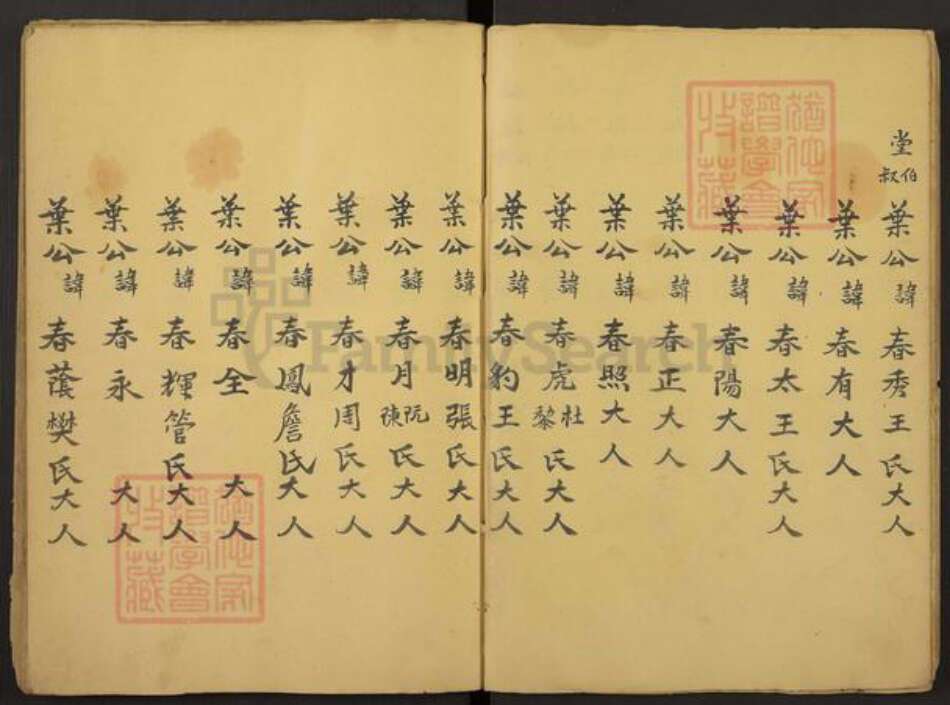 堂伯叔
葉公諱春秀王氏大人
葉公諱春有大人
葉公諱春太王氏大人
葉公諱春陽大人
葉公諱春正大人
葉公諱春照大人
葉公諱春虎杜黎氏大人
葉公諱春豹王氏大人
葉公諱春明張氏大人
葉公諱春月阮陳氏大人
葉公諱春才周氏大人
葉公諱春鳳詹氏大人
葉公諱春全大人
葉公諱春輝管氏大人
葉公諱春永大人
葉公諱春蔭樊氏大人
譜學會
收藏
譜學會
收藏
FamilySearch